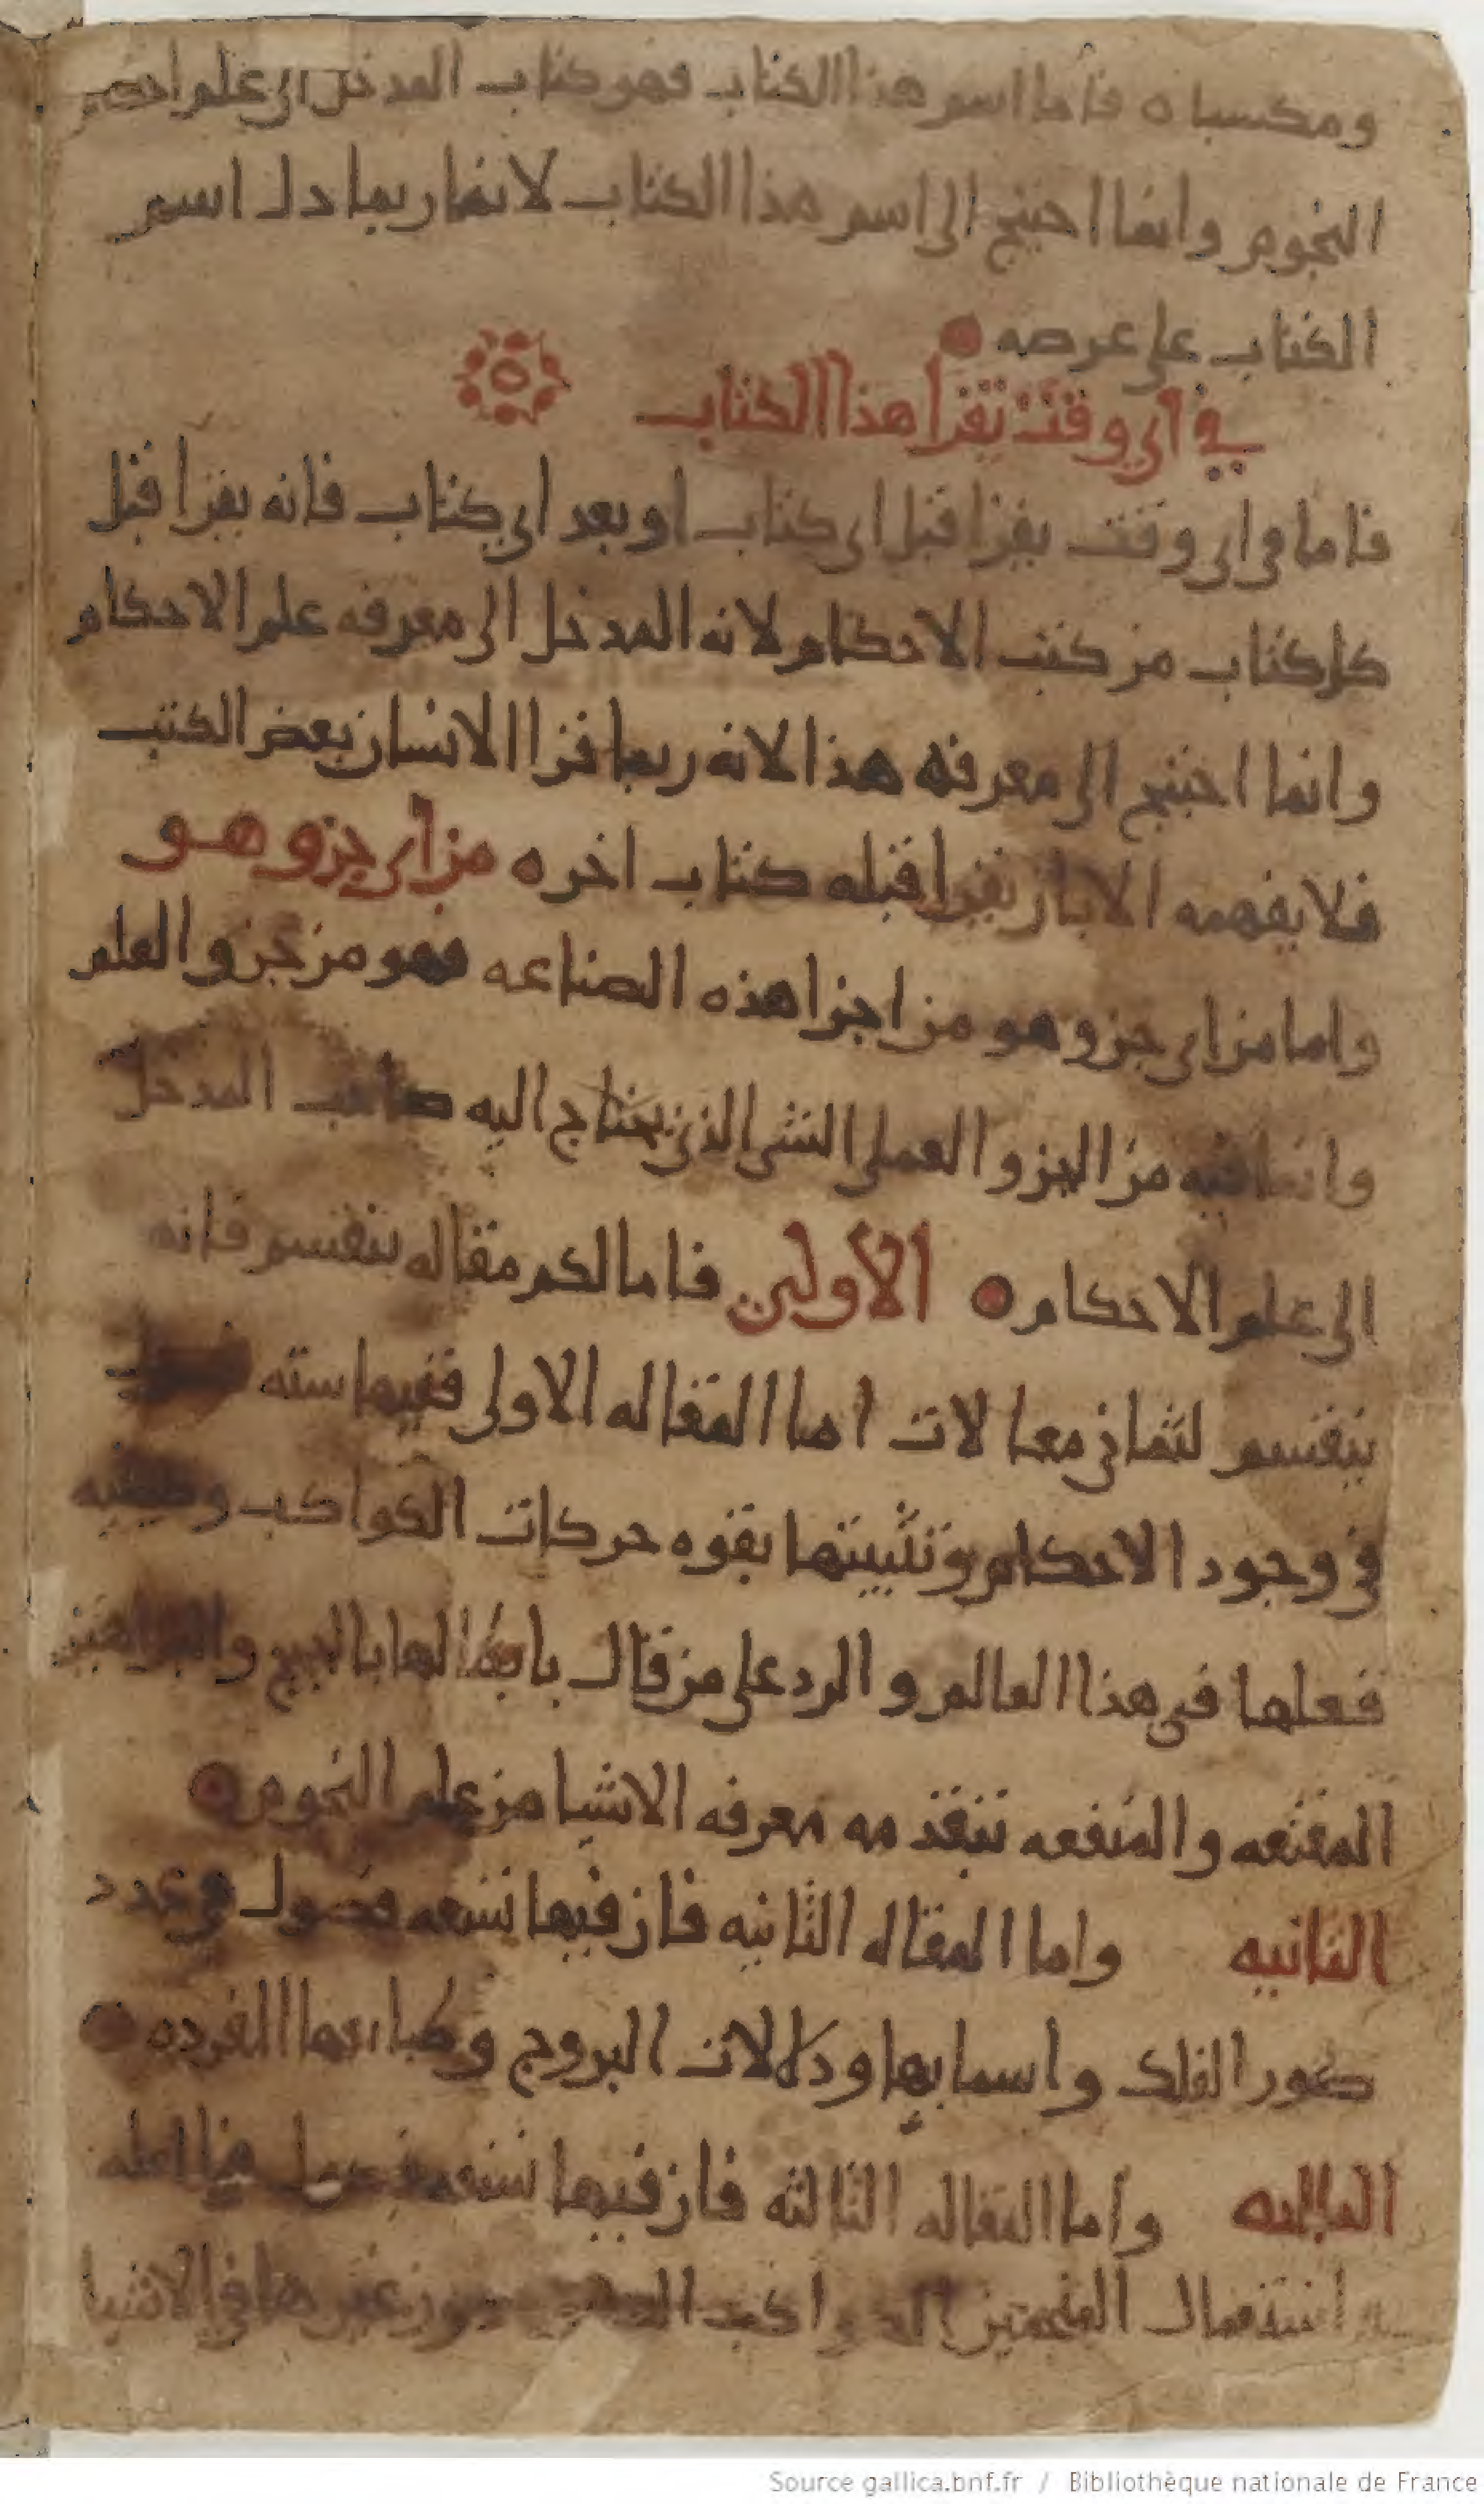 ومكسبا ه فاما اسم هذا الكتاب فهو كتاب المدخل الى علم احكام
النجوم وانما احتيج الى اسم هذا الكتاب لانه ربما دل اسم
الكتاب على عرضه
في اى وقت يقرا هذا الكتاب
فاما فى اى وقت يقرا قبل اى كتاب او بعد اى كتاب فانه يقرا قبل
كل كتاب من كتب الاحكام لانه المدخل الى معرفه علم الاحكام
وانما احتيج الى معرفه هذا لانه ربما قرا الانسان بعض الكتب
فلا يفهمه الا بان يقرا قبله كتاب اخر ه من اى جزو هو
واما من اى جزو هو من اجزا هذه الصناعه فهو من جزو العلم
وانما فيه من الجزو العملى الشى الذى يحتاج اليه صاحب المدخل
الى علم الاحكام الاولى فاما لكم مقاله ينقسم فانه
ينقسم لثمانى مقالات اما المقاله الاولى ففيها سته
فى وجود الاحكام وتثبيتها بقوه حركات الكواكب وكيفيه
فعلها فى هذا العالم و الرد على من قال بابطالها بالحجج والبراهين
المقنعه والمنفعه بتقدمه معرفه الاشيا من علم النجوم
الثانيه واما المقاله الثانيه فان فيها تسعه فصول وعدد
صور الفلك واسمايها ودلالات البروج وطبايعها المفرده
الثالثه واما المقاله الثالثه فان فيها تسعه فصول
استعمال المنجمين الكواكب دون غيرها فى الاشيا
Source gallica.bnf.fr / Bibliothèque nationale de France